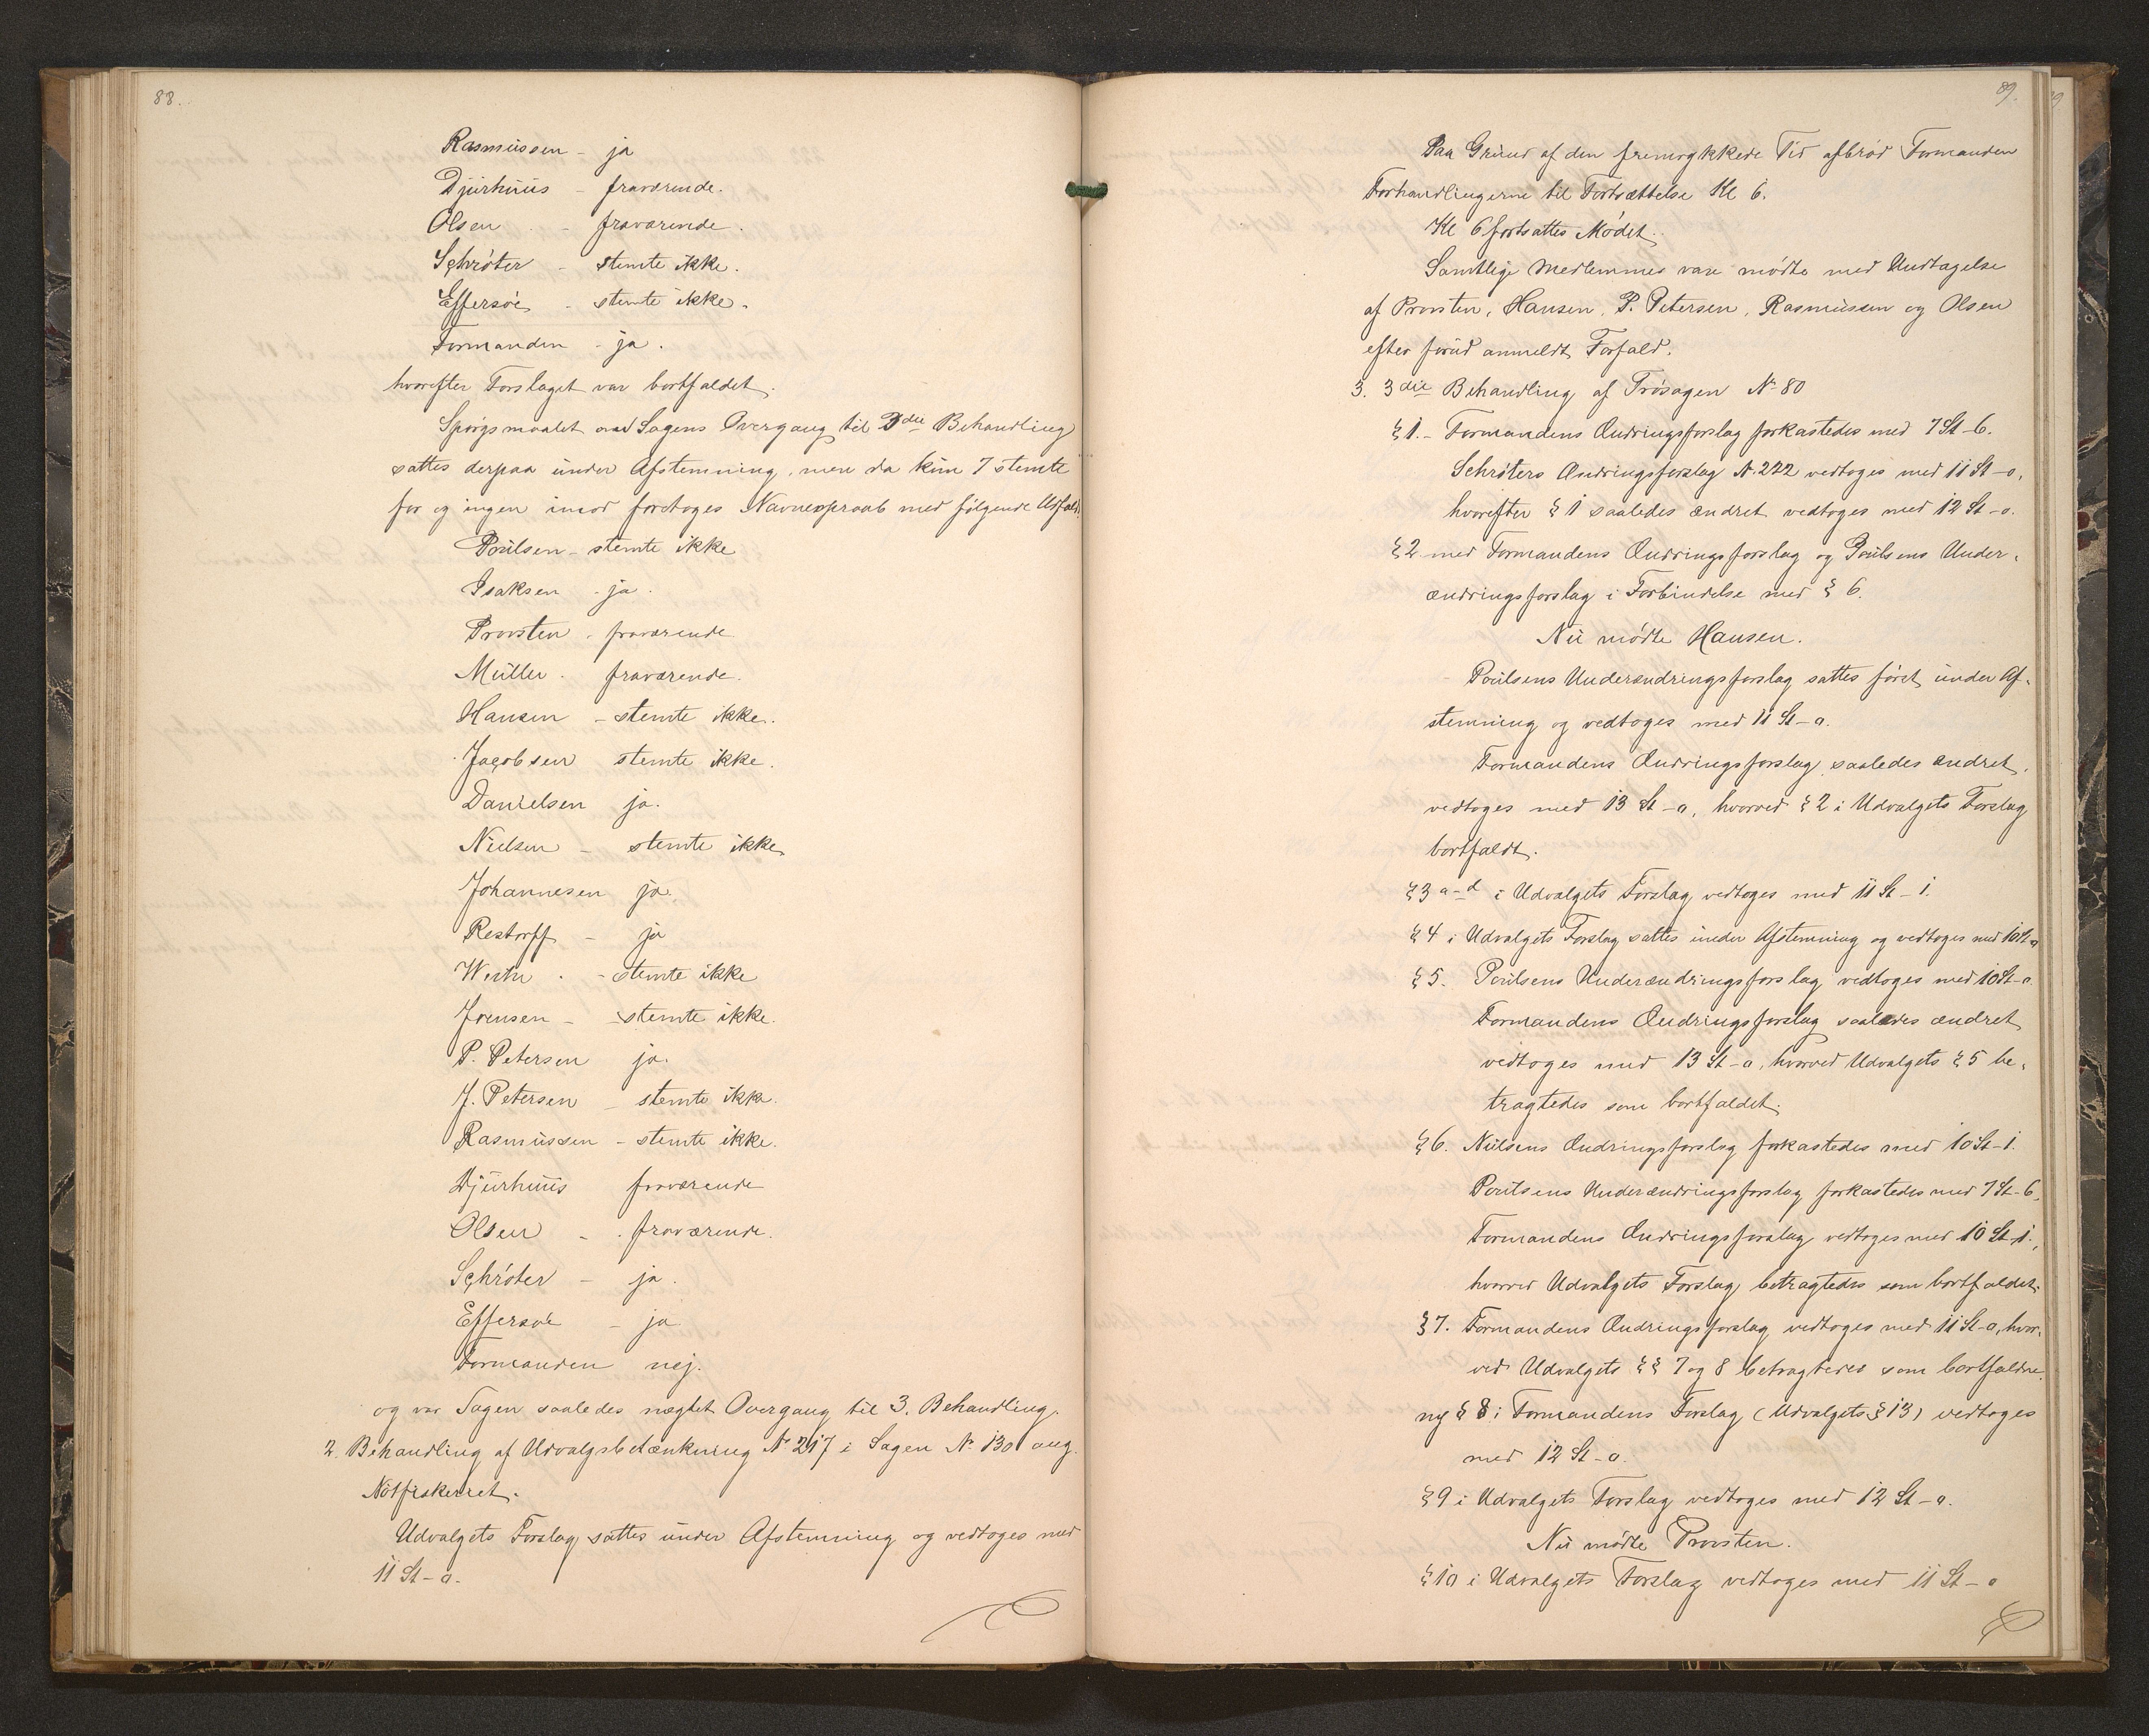 88.
Rasmussen - ja
Djurhuus - fraværende.
Olsen - fraværende.
Schröter - stemte ikke.
Effersöe - stemte ikke.
Formanden - ja.
hvorefter Forslaget var bortfaldet.
Spörgsmaalet om Sagens Overgang til 3die Behandling
sattes derpaa under Afstemning, men da kun 7 stemte
for og ingen imod foretoges Navneopraab med fölgende Udfald:
Poulsen - stemte ikke
Isaksen - ja.
Provsten - fraværende
Müller - fraværende.
Hansen - stemte ikke.
Jacobsen stemte ikke.
Danielsen ja.
Nielsen - stemte ikke
Johannesen ja.
Restorff - ja
Weihe - stemte ikke
Joensen - stemte ikke.
P. Petersen ja.
J. Petersen - stemte ikke.
Rasmussen - stemte ikke.
Djurhuus fraværende
Olsen - fraværende.
Schröter - ja.
Effersöe - ja
Formanden nej.
og var Sagen saaledes nægtet Overgang til 3. Behandling.
2. Behandling af Udvalgsbetænkning No 217 i Sagen No 130 ang.
Notfiskeriet.
Udvalgets Forslag sattes under Afstemning og vedtoges med
11 St - 0.
89.
Paa Grund af den fremrykkede Tid afbröd Formanden
Forhandlingerne til Fortsættelse Kl 6.
Kl 6 fortsattes Mödet.
Samtlige Medlemmer vare mödte med Undtagelse
af Provsten, Hansen, P. Petersen, Rasmussen og Olsen
efter forud anmeldt Forfald.
3. 3die Behandling af Trösagen No 80
§ 1. - Formandens Ændringsforslag forkastedes med 7 St - 6.
Schröters Ændringsforslag No 222 vedtoges med 11 St - 0,
hvorefter § 1 saaledes ændret vedtoges med 12 St - 0.
§ 2 med Formandens Ændringsforslag og Poulsens Under-
ændringsforslag i Forbindelse med § 6.
Nu mödte Hansen.
Poulsens Underændringsforslag sattes först under Af-
stemning og vedtoges med 11 St - 0.
Formandens Ændringsforslag saaledes ændret,
vedtoges med 13 St - 0, hvorved § 2 i Udvalgets Forslag
bortfaldt.
§ 3 a-d i Udvalgets Forslag vedtoges med 11 St - 1.
§ 4 i Udvalgets Forslag sattes under Afstemning og vedtoges med 10 St - 0
§ 5. Poulsens Underændringsforslag vedtoges med 10 St - 0.
Formandens Ændringsforslag saaledes ændret
vedtoges med 13 St - 0, hvorved Udvalgets § 5 be-
tragtedes som bortfaldet.
§ 6. Nielsens Ændringsforslag forkastedes med 10 St - 1.
Poulsens Underændringsforslag forkastedes med 7 St - 6.
Formandens Ændringsforslag vedtoges med 10 St - 1.,
hvorved Udvalgets Forslag betragtedes som bortfaldet.
§ 7. Formandens Ændringsforslag vedtoges med 11 St - 0, hvor-
ved Udvalgets §§ 7 og 8 betragtedes som bortfaldne.
ny § 8 i Formandens Forslag (Udvalgets § 13) vedtoges
med 12 St - 0.
§ 9 i Udvalgets Forslag vedtoges med 12 St - 0.
Nu mödte Provsten.
§ 10 i Udvalgets Forslag vedtoges med 11 St - 0